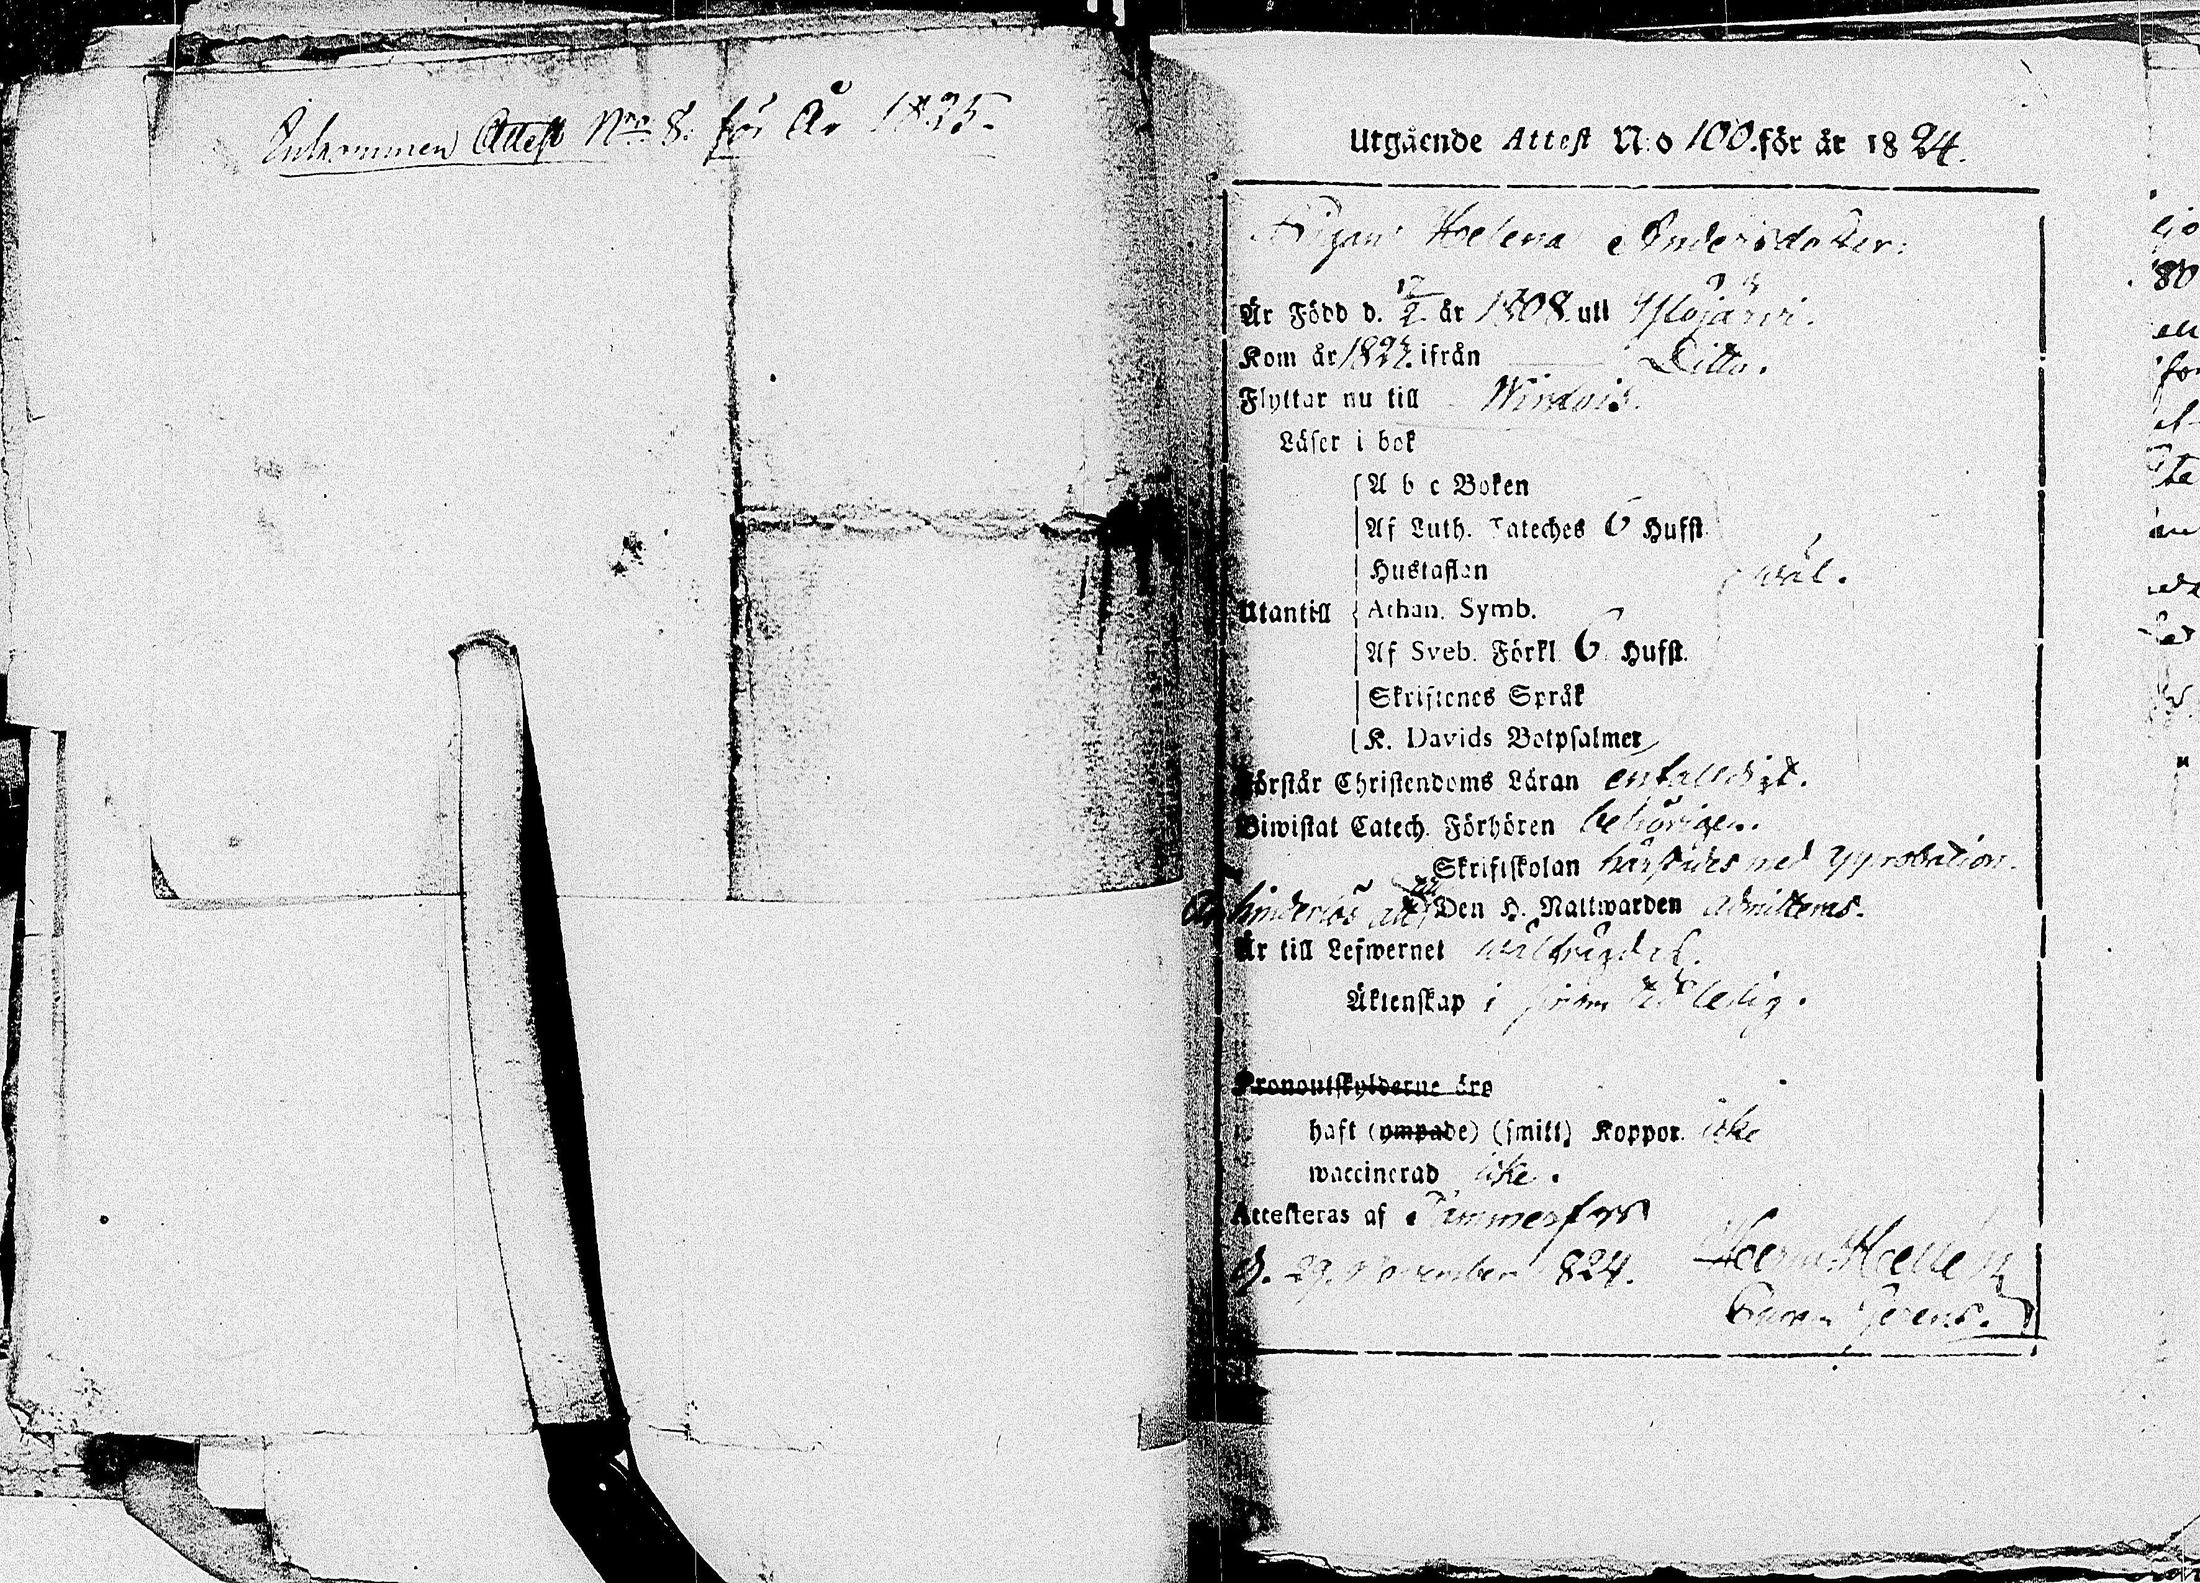 Inkommen Attest Nro 8. för År 1825.
Utgående Attest N:o 100. för år 1824.
Pigan Helena Andersdotter.
Är Född d. 17/2 år 1808. uti Ylöjärvi.
Kom år 1824. ifrån Ditto.
Flyttar nu till Wirdois.
Läser i bok
A b c Boken
Af Luth. Cateches 6 Hufst
Hustaflan
wäl.
Utantill
Athan. Symb.
Af Sveb. Förkl. 6 Hufst.
Skriftenes Språk
K. Davids Botpsalmer
Förstår Christendoms Läran enfalldigt.
Biwistat Catech. Förhören behörigen.
Skriftskolan härstädes med approbation.
Är hinderlös att till Den H. Nattwarden admitteras.
Är till Lefwernet wälfrägdad.
Äktenskap i ledig.
Kronoutskylderne äro
haft (ympade) (smitt) Koppor. icke
waccinerad icke.
Attesteras af Tammerfors
d. 29. November 1824.